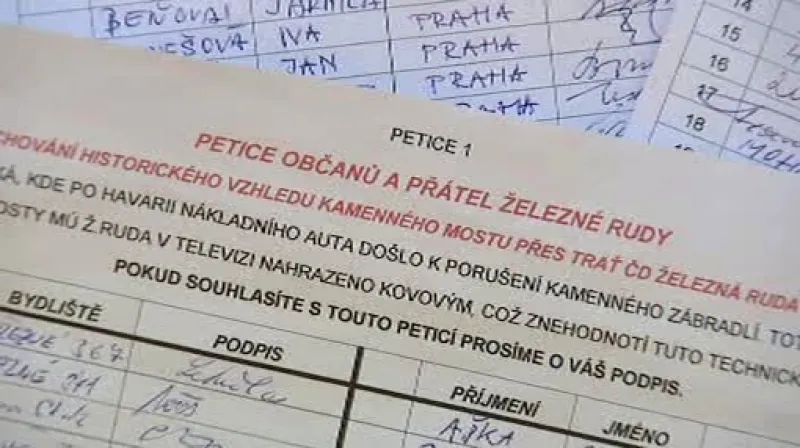 BEŇOVÁ JARMILA
IVA PRAHA
JAN PRAHA
PRAHA
PRAHA
14
15
16
17
18
PETICE 1
PETICE OBČANŮ A PŘÁTEL ŽELEZNÉ RUDY
CHOVÁNÍ HISTORICKÉHO VZHLEDU KAMENNÉHO MOSTU PŘES TRAŤ ČD ŽELEZNÁ RUDA
KÁ, KDE PO HAVARII NÁKLADNÍHO AUTA DOŠLO K PORUŠENÍ KAMENNÉHO ZÁBRADLÍ. TOT
OSTY MÚ Ž.RUDA V TELEVIZI NAHRAZENO KOVOVÝM, COŽ ZNEHODNOTÍ TUTO TECHNICK
POKUD SOUHLASÍTE S TOUTO PETICÍ PROSÍME O VÁŠ PODPIS.
BYDLIŠTĚ PODPIS PŘÍJMENÍ JMÉNO
367
AŠKA